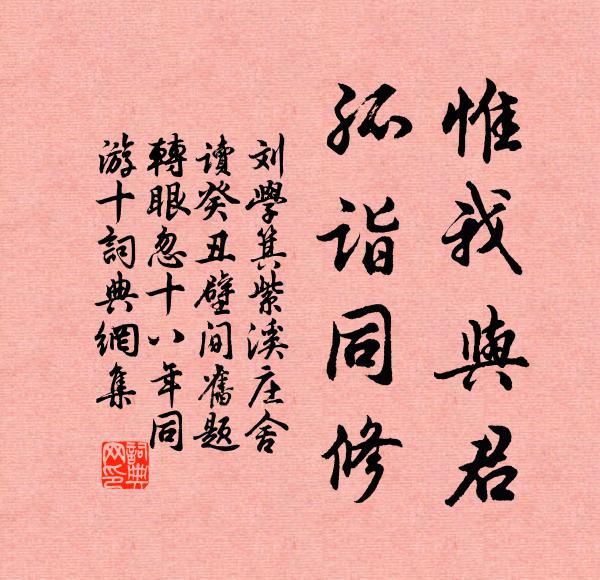 惟我與君
孤詣同修
刘學箕紫溪庄舍
讀癸丑壁间舊题
轉眼忽十八年同
游十詞典網集
詞典
网印